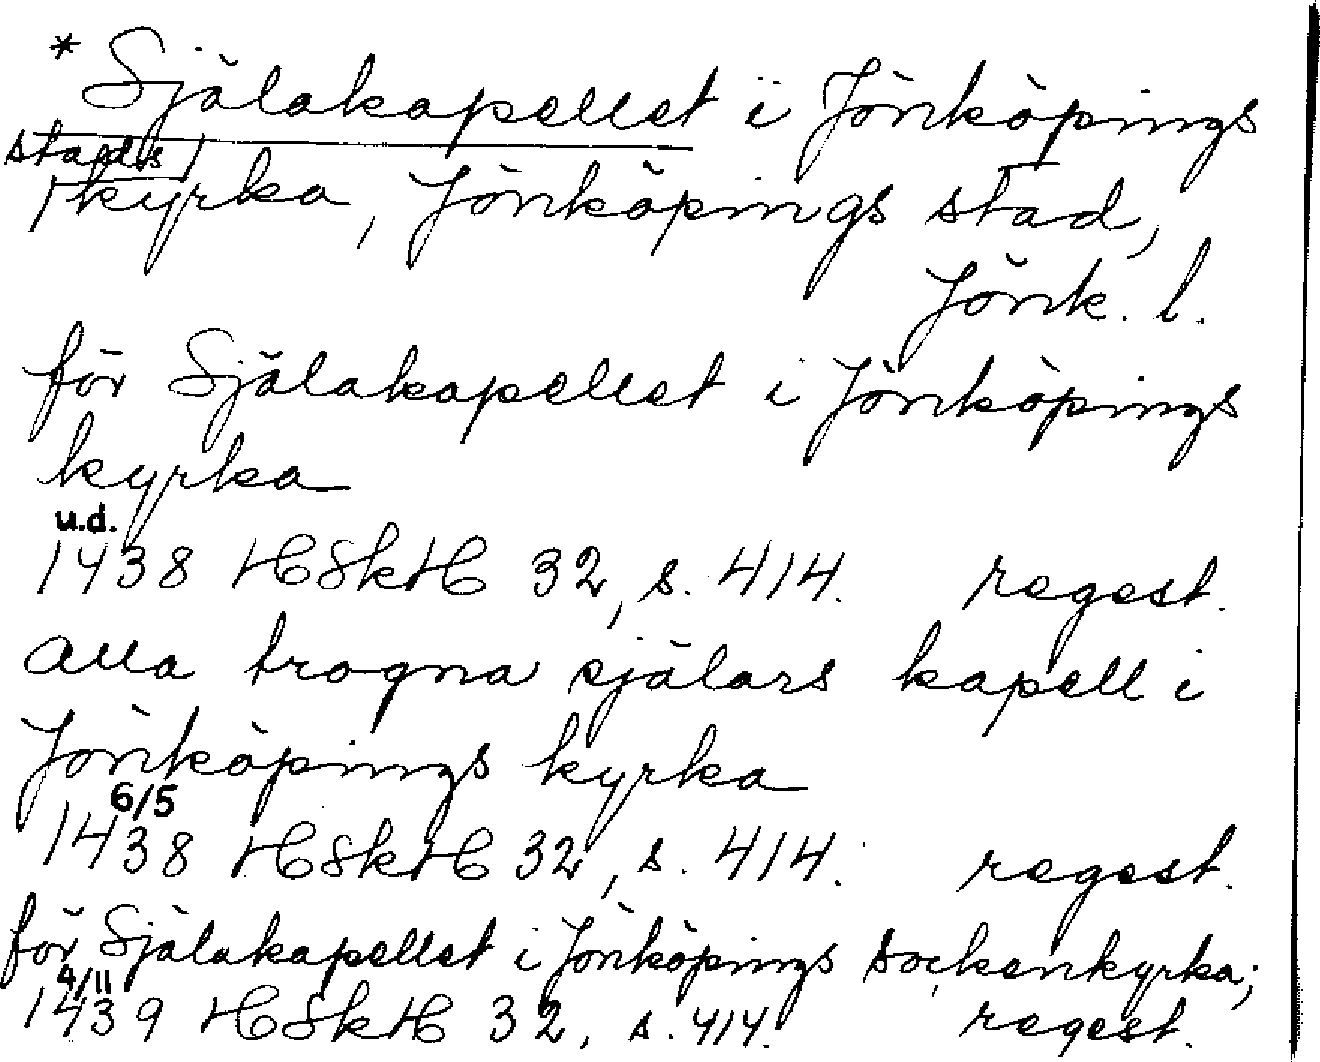 * Själakapellet i Jönköpings
stads
kyrka, Jönköpings stad,
Jönk. l.
för Själakapellet i Jönköpings
kyrka
u.d.
1438 HSkH 32, s. 414. regest.
Alla trogna själars kapell i
Jönköpings kyrka
6/5
1438 HSkH 32, s. 414. regest.
för Själakapellet i Jönköpings sockenkyrka;
4/11
1439 HSkH 32, s. 414. regest.